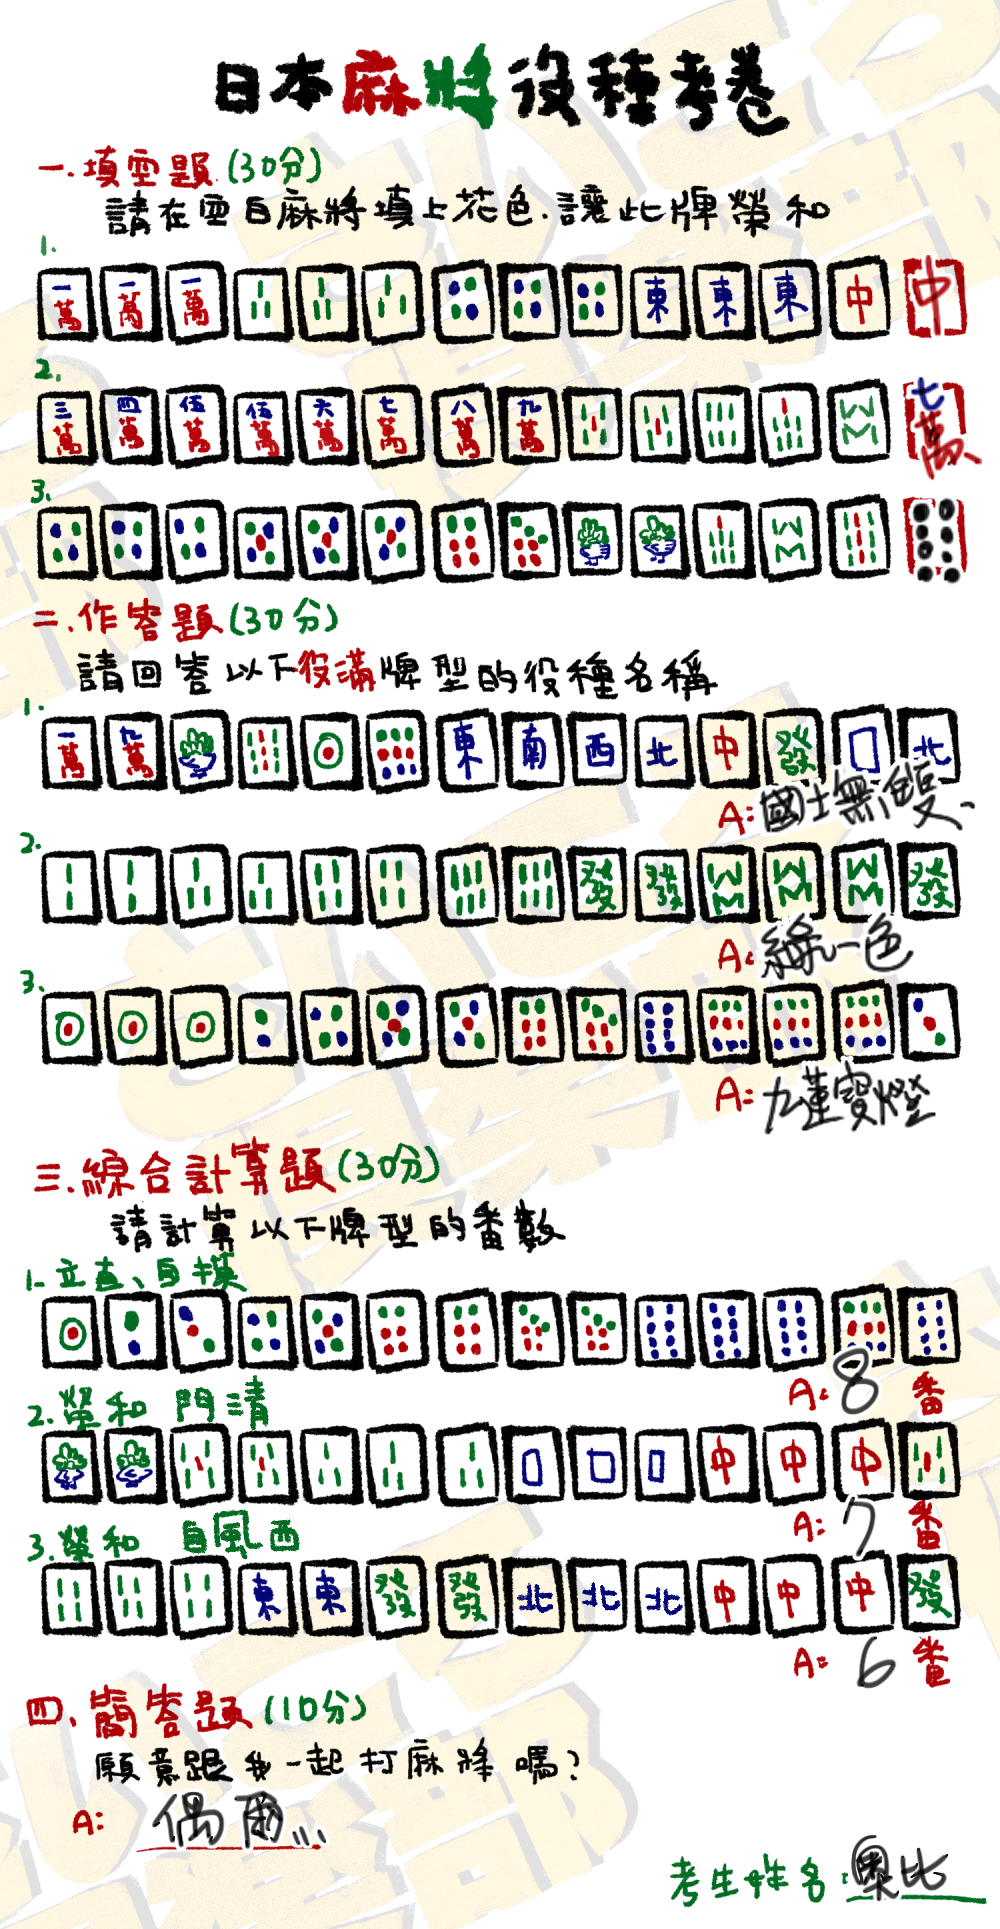 日本麻將役種考卷
一.填空題(30分)
請在空白麻將填上花色.讓此牌榮和
1.
一萬 一萬 一萬 東 東 東 中 中
2.
三萬 四萬 伍萬 伍萬 六萬 七萬 八萬 九萬 七萬
3.
二.作答題(30分)
請回答以下役滿牌型的役種名稱
1.
一萬 九萬 東 南 西 北 中 發 北
A:國士無雙、
2.
發 發 發
A:綠一色
3.
A:九蓮寶燈
三.綜合計算題(30分)
請計算以下牌型的番數
1.立直、自摸
A:8番
2.榮和 門清
中 中 中
A:7番
3.榮和 自風西
東 東 發 發 北 北 北 中 中 中 發
A:6番
四、簡答題(10分)
願意跟我一起打麻將嗎?
A:偶爾...
考生姓名:奧比